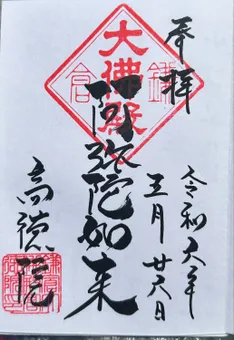 奉拝
令和六年
五月廿六日
大佛殿
鎌倉
阿弥陀如来
高徳院